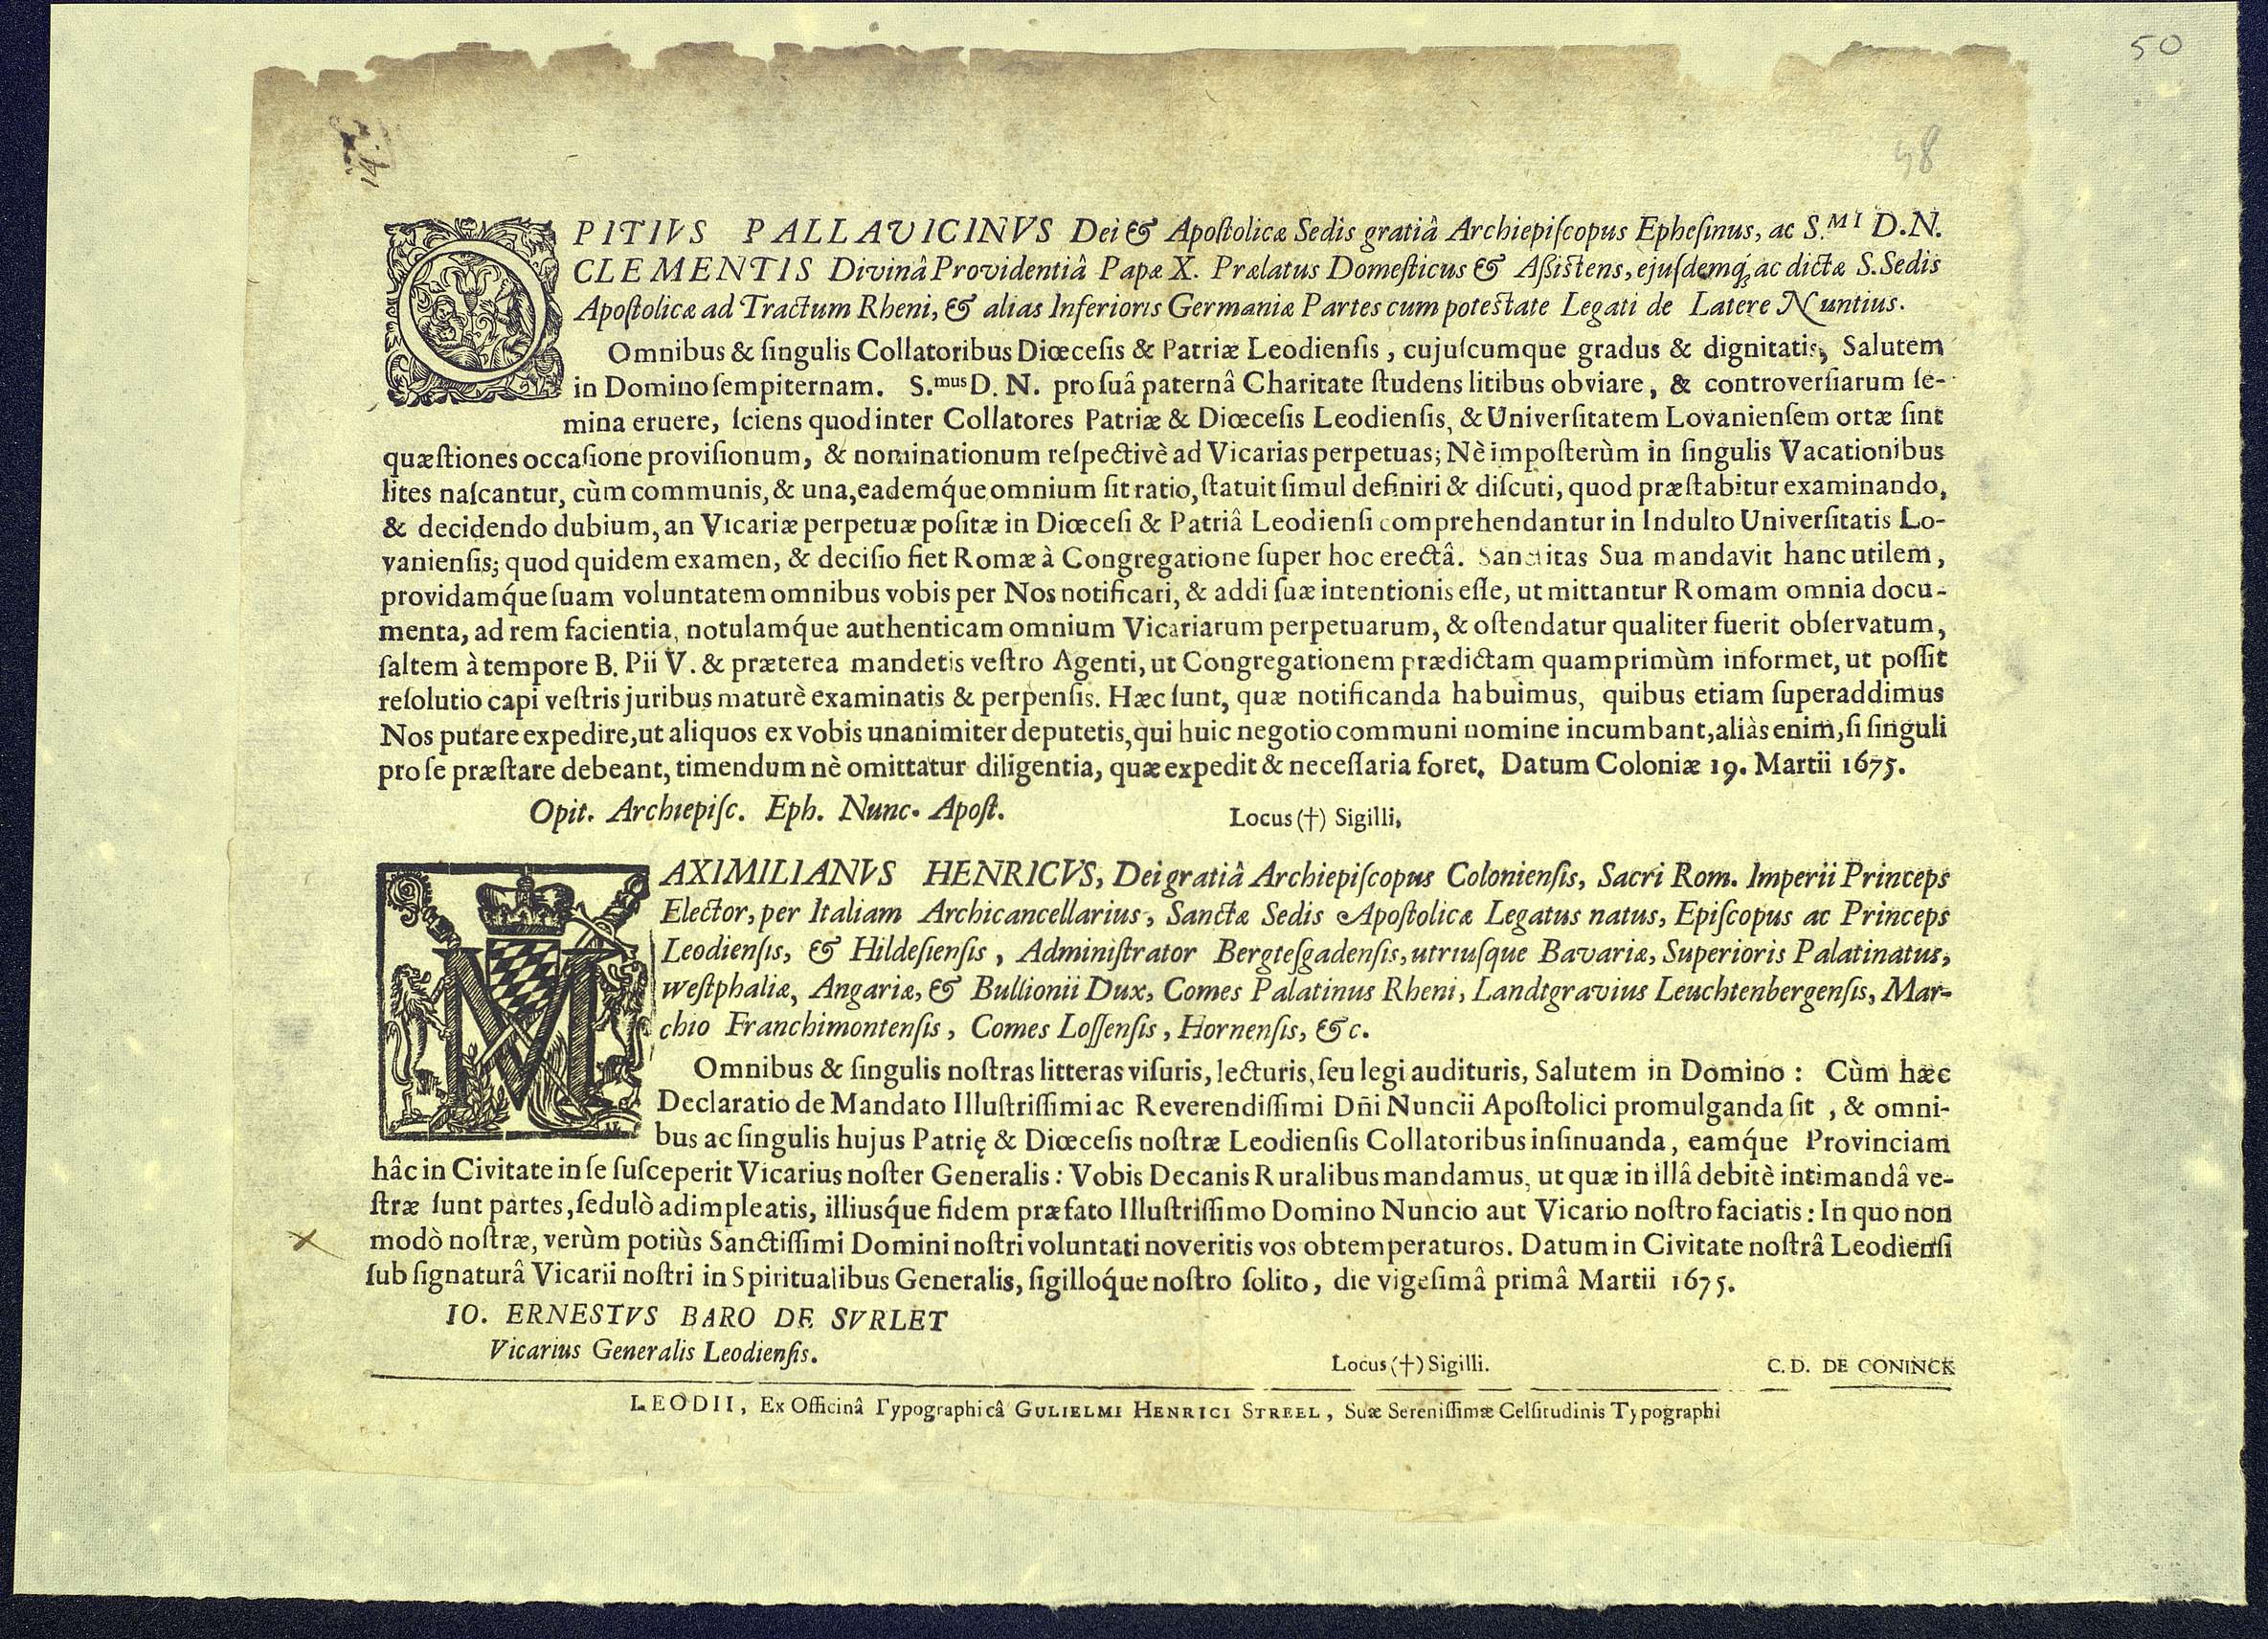 50
58
14.
OPITIVS PALLAVICINVS Dei & Apostolicæ Sedis gratiâ Archiepiſcopus Epheſinus, ac S.MI D.N.
CLEMENTIS Divinâ Providentiâ Papæ X. Prælatus Domeſticus & Aßiſtens, ejuſdemq́; ac dictæ S. Sedis
Apoſtolicæ ad Tractum Rheni, & alias Inferioris Germaniæ Partes cum poteſtate Legati de Latere Nuntius.
Omnibus & ſingulis Collatoribus Diœceſis & Patriæ Leodienſis, cujuſcumque gradus & dignitatis, Salutem
in Domino ſempiternam. S.mus D. N. pro ſuâ paternâ Charitate ſtudens litibus obviare, & controverſiarum ſe-
mina eruere, ſciens quod inter Collatores Patriæ & Diœceſis Leodienſis, & Univerſitatem Lovanienſem ortæ ſint
quæſtiones occaſione proviſionum, & nominationum reſpectivè ad Vicarias perpetuas; Nè impoſterùm in ſingulis Vacationibus
lites naſcantur, cùm communis, & una, eademq́ue omnium ſit ratio, ſtatuit ſimul definiri & diſcuti, quod præſtabitur examinando,
& decidendo dubium, an Vicariæ perpetuæ poſitæ in Diœceſi & Patriâ Leodienſi comprehendantur in Indulto Univerſitatis Lo-
vanienſis; quod quidem examen, & deciſio fiet Romæ à Congregatione ſuper hoc erectâ. Sanctitas Sua mandavit hanc utilem,
providamq́ue ſuam voluntatem omnibus vobis per Nos notificari, & addi ſuæ intentionis eſſe, ut mittantur Romam omnia docu-
menta, ad rem facientia, notulamq́ue authenticam omnium Vicariarum perpetuarum, & oſtendatur qualiter fuerit obſervatum,
ſaltem à tempore B. Pii V. & præterea mandetis veſtro Agenti, ut Congregationem prædictam quamprimùm informet, ut poſſit
reſolutio capi veſtris juribus maturè examinatis & perpenſis. Hæc ſunt, quæ notificanda habuimus, quibus etiam ſuperaddimus
Nos putare expedire, ut aliquos ex vobis unanimiter deputetis, qui huic negotio communi nomine incumbant, aliàs enim, ſi ſinguli
pro ſe præſtare debeant, timendum nè omittatur diligentia, quæ expedit & neceſſaria foret. Datum Coloniæ 19. Martii 1675.
Opit. Archiepiſc. Eph. Nunc. Apoſt. Locus (†) Sigilli,
MAXIMILIANVS HENRICVS, Dei gratiâ Archiepiſcopus Colonienſis, Sacri Rom. Imperii Princeps
Elector, per Italiam Archicancellarius, Sanctæ Sedis Apoſtolicæ Legatus natus, Epiſcopus ac Princeps
Leodienſis, & Hildeſienſis, Adminiſtrator Bergteſgadenſis, utriuſque Bavariæ, Superioris Palatinatus,
weſtphaliæ, Angariæ, & Bullionii Dux, Comes Palatinus Rheni, Landtgravius Leuchtenbergenſis, Mar-
chio Franchimontenſis, Comes Loſſenſis, Hornenſis, &c.
Omnibus & ſingulis noſtras litteras viſuris, lecturis, ſeu legi audituris, Salutem in Domino : Cùm hæc
Declaratio de Mandato Illuſtriſſimi ac Reverendiſſimi Dñi Nuncii Apoſtolici promulganda ſit, & omni-
bus ac ſingulis hujus Patrię & Diœceſis noſtræ Leodienſis Collatoribus inſinuanda, eamq́ue Provinciam
hâc in Civitate in ſe ſuſceperit Vicarius noſter Generalis : Vobis Decanis Ruralibus mandamus, ut quæ in illâ debitè intimandâ ve-
ſtræ ſunt partes, ſedulò adimpleatis, illiusq́ue fidem præfato Illuſtriſſimo Domino Nuncio aut Vicario noſtro faciatis : In quo non
modò noſtræ, verùm potiùs Sanctiſſimi Domini noſtri voluntati noveritis vos obtemperaturos. Datum in Civitate noſtrâ Leodienſi
ſub ſignaturâ Vicarii noſtri in Spiritualibus Generalis, ſigilloq́ue noſtro ſolito, die vigeſimâ primâ Martii 1675.
IO. ERNESTVS BARO DE SVRLET
Vicarius Generalis Leodienſis.
Locus (†) Sigilli. C. D. DE CONINCK
LEODII, Ex Officinâ Typographicâ GULIELMI HENRICI STREEL, Suæ Sereniſſimæ Celſitudinis Typographi